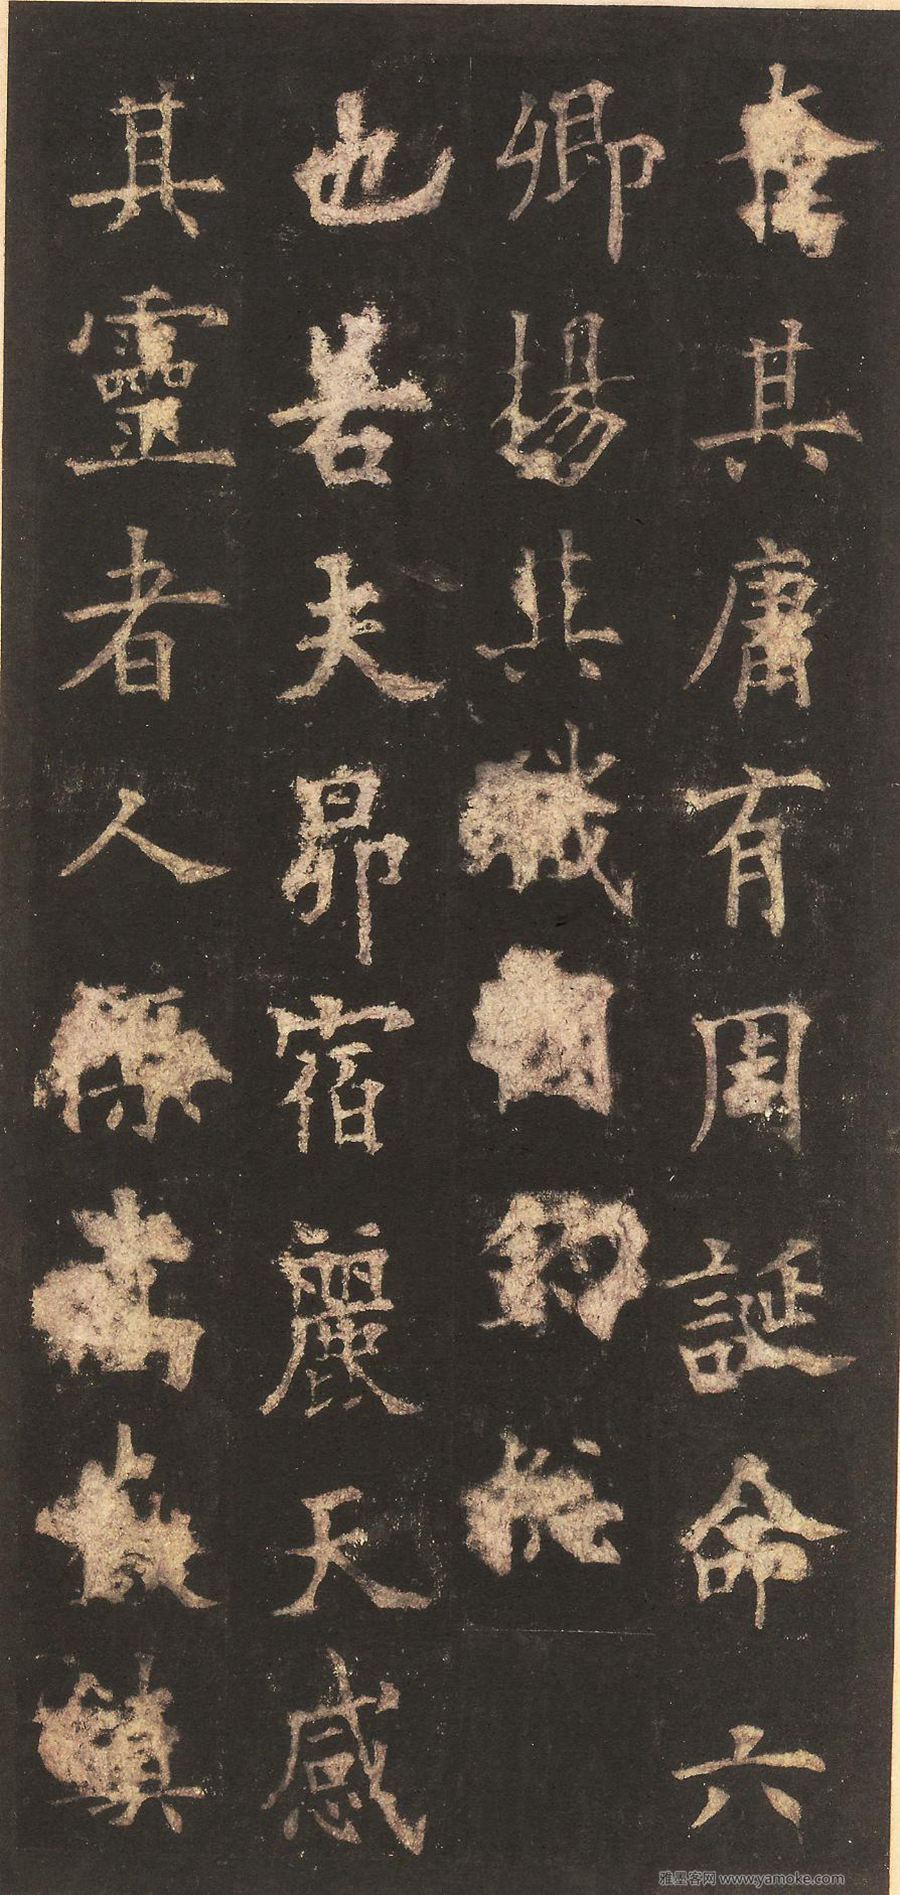 舍其庸有周誕命六
卿揚其職國鈞悅
也若夫昴宿麗天感
其靈者人傑嵩嶽鎮
雅墨客网 www.yamoke.com